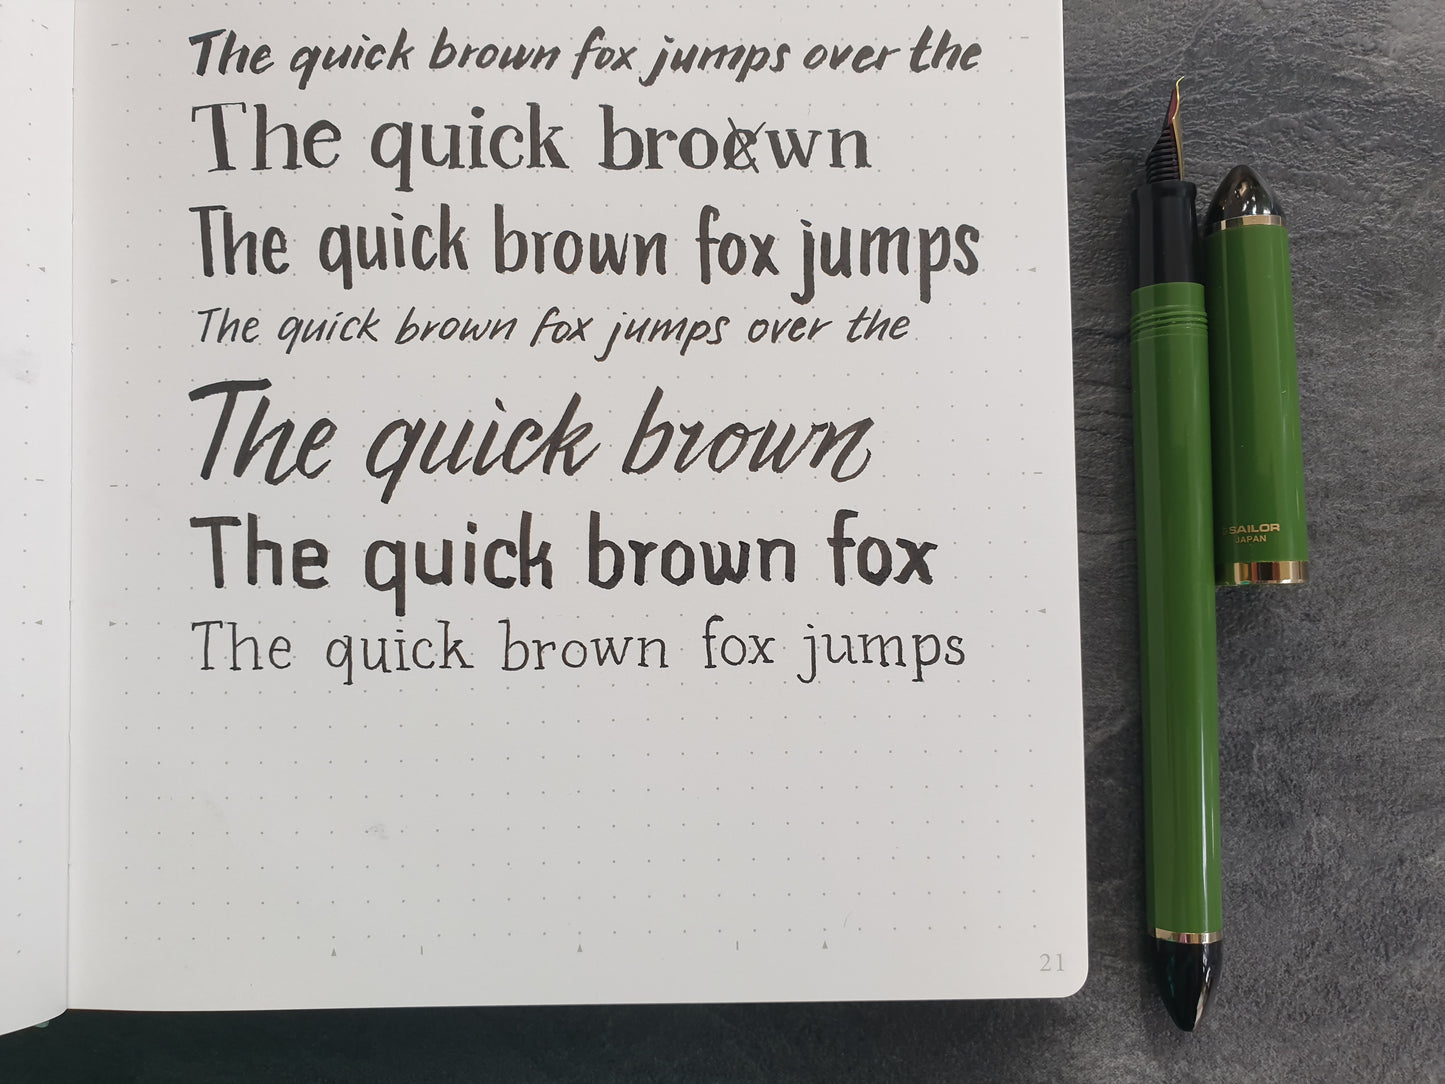 The quick brown fox jumps over the
The quick brown
The quick brown fox jumps
The quick brown fox jumps over the
The quick brown
The quick brown fox
The quick brown fox jumps
21
SAILOR
JAPAN